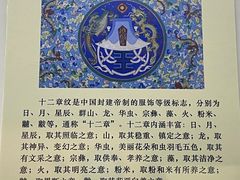 十二章纹是中国封建帝制的服饰等级标志，分别为
日、月、星辰、群山、龙、华虫、宗彝、藻、火、粉米、
黼、黻等，通称“十二章”。十二章内涵丰富：日、月、
星辰，取其照临之意；山，取其稳重、镇定之意；龙，取
其神异、变幻之意；华虫，美丽花朵和虫羽毛五色，取其
有文采之意；宗彝，取供奉、孝养之意；藻，取其洁净之
意；火，取其光明之意；粉米，取粉和米有所养之意；